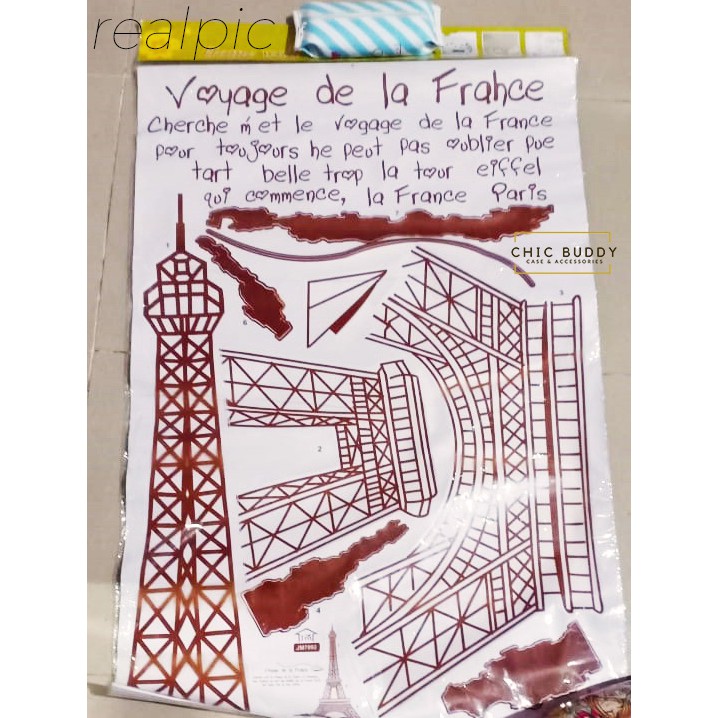 realpic
Voyage de la France
Cherche m'et le vogage de la France
pour toujours he peut pas oublier pue
tart belle trop la tour eiffel
qui commence, la France Paris
CHIC BUDDY
CASE & ACCESSORIES
1
5
6
2
4
JM7092